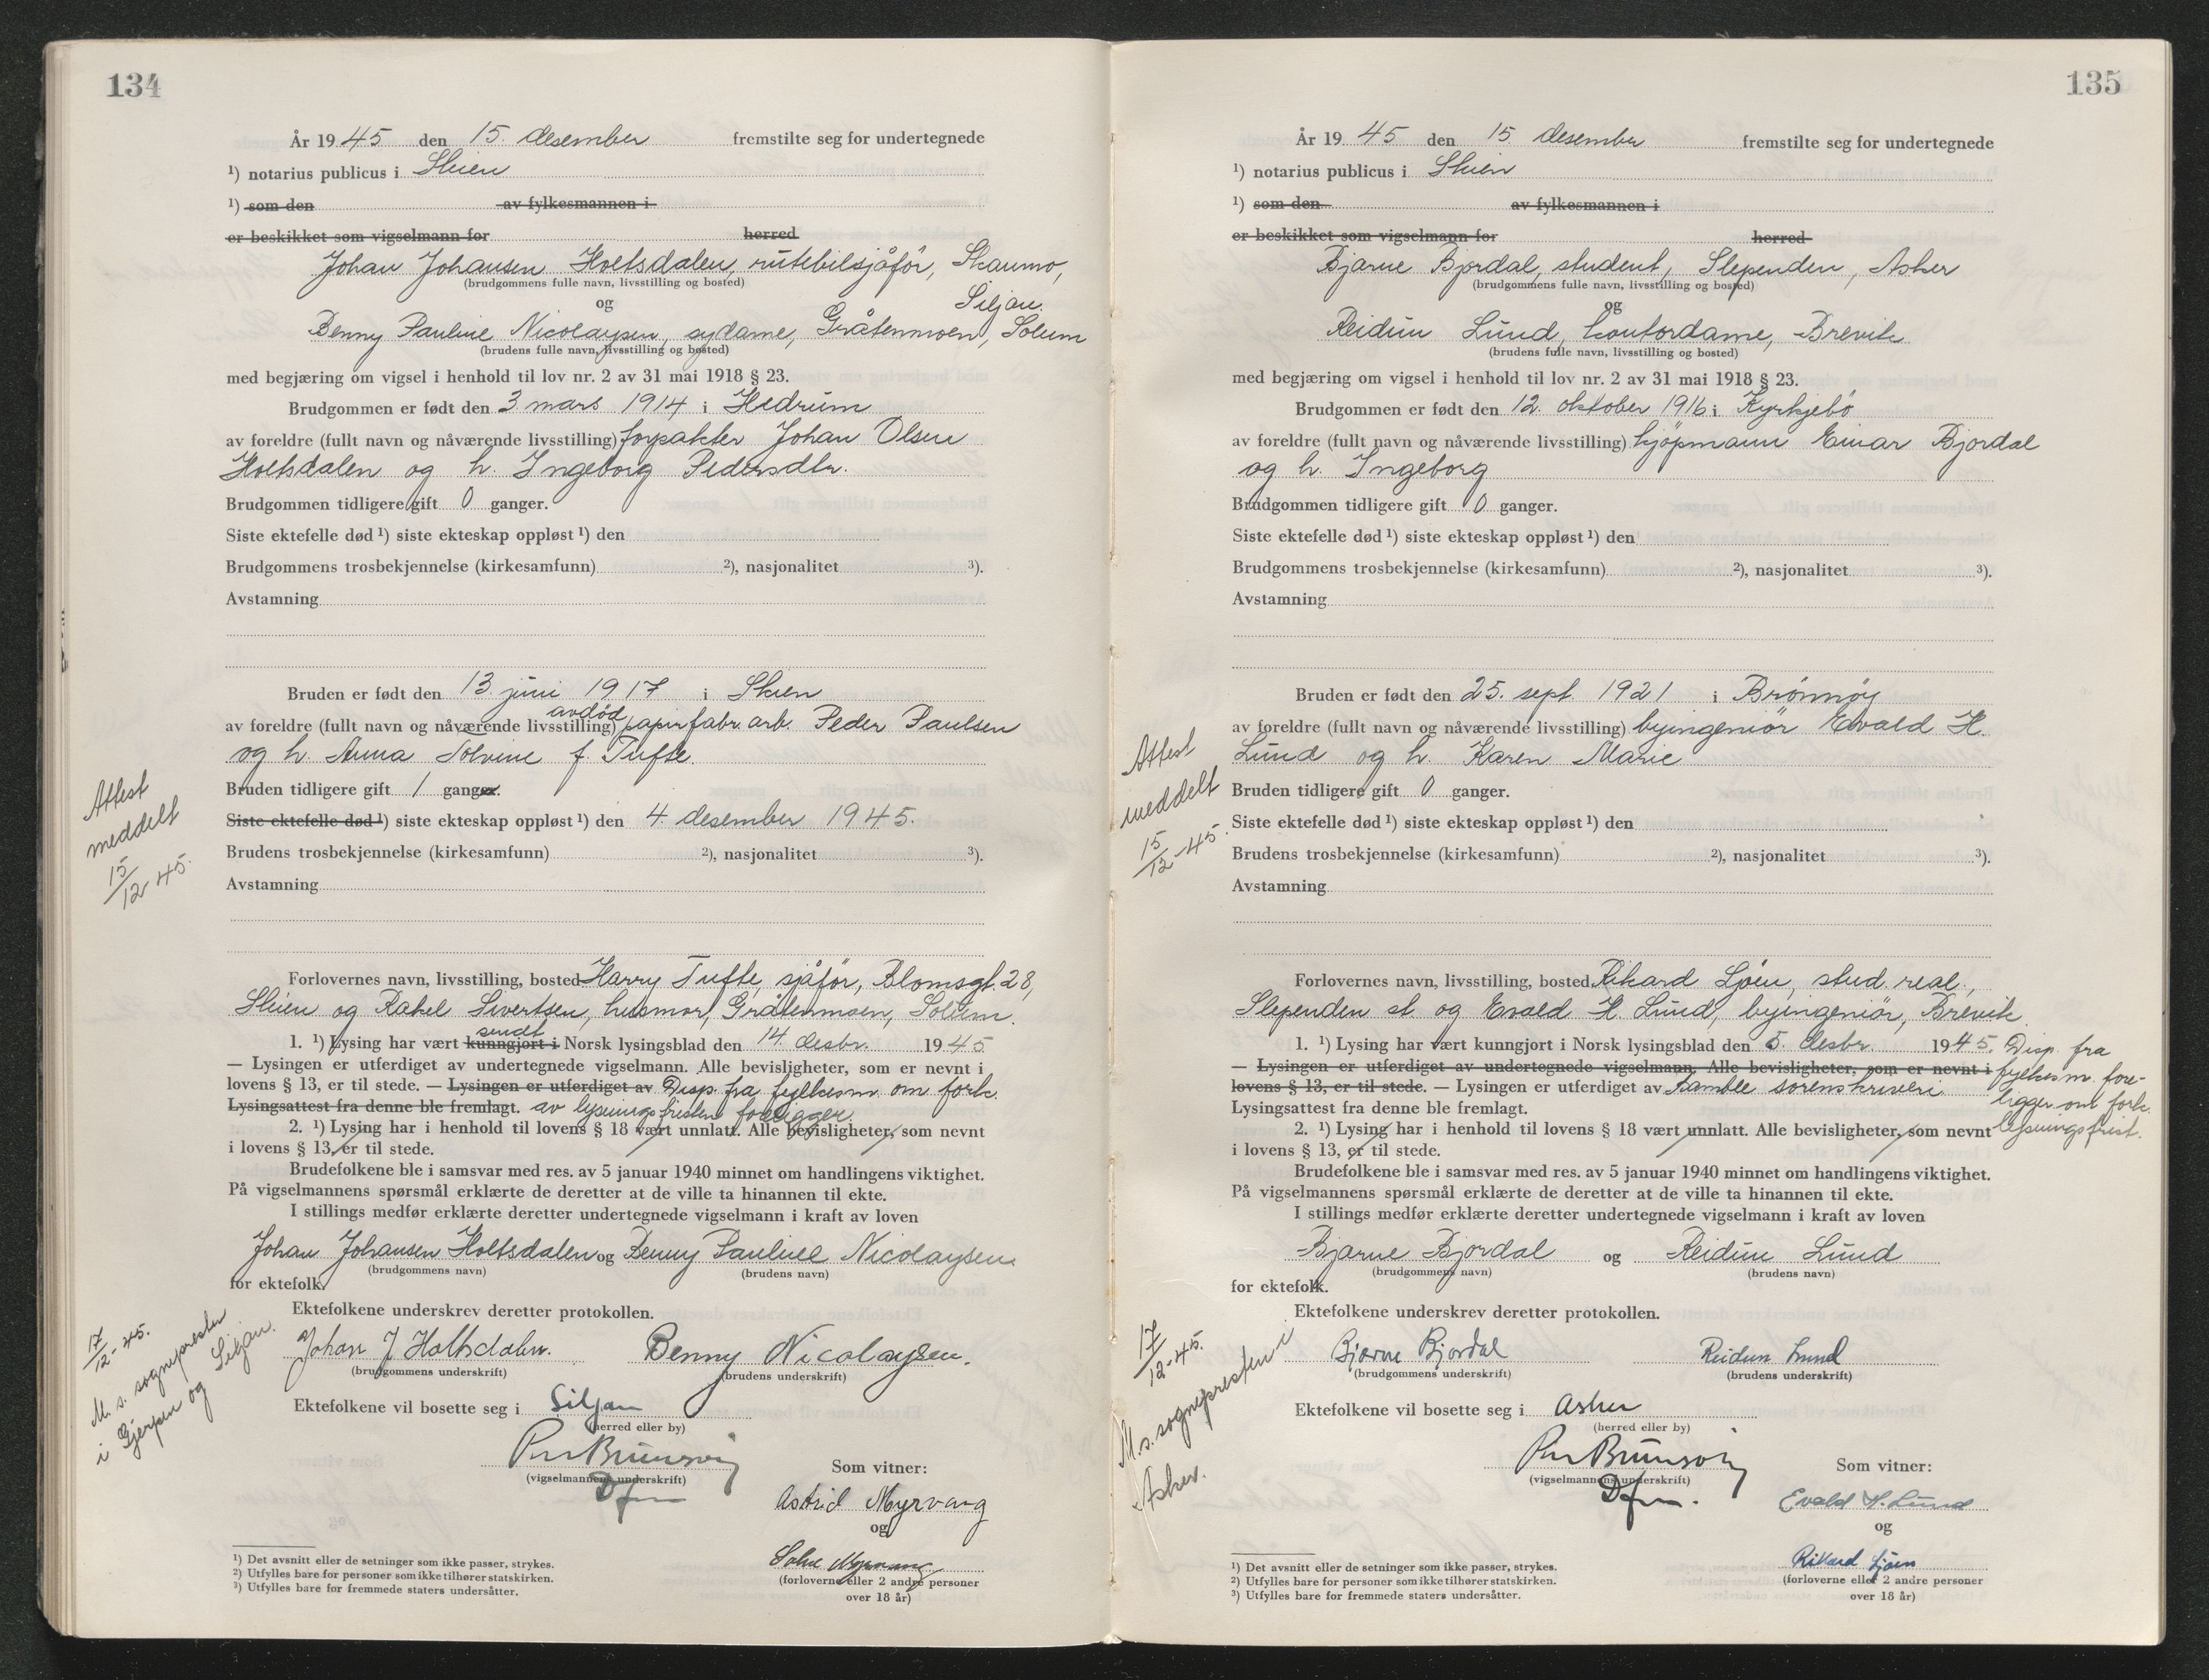 134
År 1945 den 15. desember fremstilte seg for undertegnede
¹) notarius publicus i Skien
¹) som den av fylkesmannen i
er beskikket som vigselmann for herred
Johan Johansen Holtsdalen, rutebilsjåfør, Skaumo,
(brudgommens fulle navn, livsstilling og bosted)
og Siljan.
Benny Pauline Nicolaysen, sydame, Gråtenmoen, Solum
(brudens fulle navn, livsstilling og bosted)
med begjæring om vigsel i henhold til lov nr. 2 av 31 mai 1918 § 23.
Brudgommen er født den 3. mars 1914 i Hedrum
av foreldre (fullt navn og nåværende livsstilling) forpakter Johan Olsen
Holtsdalen og h. Ingeborg Pedersdtr.
Brudgommen tidligere gift 0 ganger.
Siste ektefelle død ¹) siste ekteskap oppløst ¹) den
Brudgommens trosbekjennelse (kirkesamfunn) ²), nasjonalitet ³).
Avstamning
Bruden er født den 13. juni 1917 i Skien
avdød
av foreldre (fullt navn og nåværende livsstilling) papirfabr. arb. Peder Paulsen
og h. Anna Tolvine f. Tufte
Bruden tidligere gift 1 ganger.
Siste ektefelle død ¹) siste ekteskap oppløst ¹) den 4. desember 1945.
Brudens trosbekjennelse (kirkesamfunn) ²), nasjonalitet ³).
Avstamning
Attest
meddelt
15/12-45.
Forlovernes navn, livsstilling, bosted Harry Tufte, sjåfør, Blomsgt. 28,
Skien og Rakel Sivertsen, husmor, Gråtenmoen, Solum.
sendt
1. ¹) Lysing har vært kunngjort i Norsk lysingsblad den 14. desbr. 1945
— Lysingen er utferdiget av undertegnede vigselmann. Alle bevisligheter, som er nevnt i
lovens § 13, er til stede. — Lysingen er utferdiget av Disp. fra fylkesm. om fork.
Lysingsattest fra denne ble fremlagt. av lysningsfristen foreligger.
2. ¹) Lysing har i henhold til lovens § 18 vært unnlatt. Alle bevisligheter, som nevnt
i lovens § 13, er til stede.
Brudefolkene ble i samsvar med res. av 5 januar 1940 minnet om handlingens viktighet.
På vigselmannens spørsmål erklærte de deretter at de ville ta hinannen til ekte.
I stillings medfør erklærte deretter undertegnede vigselmann i kraft av loven
Johan Johansen Holtsdalen og Benny Pauline Nicolaysen
(brudgommens navn) (brudens navn)
for ektefolk.
Ektefolkene underskrev deretter protokollen.
Johan J Holtsdalen. Benny Nicolaysen.
(brudgommens underskrift) (brudens underskrift)
Ektefolkene vil bosette seg i Siljan
(herred eller by)
17/12-45.
M. s. sogneprester
i Gjerpen og Siljan.
Per Brunsvig
(vigselmannens underskrift) Som vitner:
Dfm
Astrid Myrvang
og
Myrvang
(forloverne eller 2 andre personer
over 18 år)
¹) Det avsnitt eller de setninger som ikke passer, strykes.
²) Utfylles bare for personer som ikke tilhører statskirken.
³) Utfylles bare for fremmede staters undersåtter.
135
År 1945 den 15 desember fremstilte seg for undertegnede
¹) notarius publicus i Skien
¹) som den av fylkesmannen i
er beskikket som vigselmann for herred
Bjarne Bjordal, student, Slependen, Asker
(brudgommens fulle navn, livsstilling og bosted)
og
Reidun Lund, kontordame, Brevik
(brudens fulle navn, livsstilling og bosted)
med begjæring om vigsel i henhold til lov nr. 2 av 31 mai 1918 § 23.
Brudgommen er født den 12. oktober 1916 i Kyrkjebø
av foreldre (fullt navn og nåværende livsstilling) kjøpmann Einar Bjordal
og h. Ingeborg
Brudgommen tidligere gift 0 ganger.
Siste ektefelle død ¹) siste ekteskap oppløst ¹) den
Brudgommens trosbekjennelse (kirkesamfunn) ²), nasjonalitet ³).
Avstamning
Bruden er født den 25. sept. 1921 i Brønnøy
av foreldre (fullt navn og nåværende livsstilling) byingeniør Evald H.
Lund og h. Karen Marie
Bruden tidligere gift 0 ganger.
Siste ektefelle død ¹) siste ekteskap oppløst ¹) den
Brudens trosbekjennelse (kirkesamfunn) ²), nasjonalitet ³).
Avstamning
Attest
meddelt
15/12-45.
Forlovernes navn, livsstilling, bosted Rikard Sjøen, stud. real.,
Slependen st. og Evald H. Lund, byingeniør, Brevik
1. ¹) Lysing har vært kunngjort i Norsk lysingsblad den 5. desbr. 1945. Disp. fra
— Lysingen er utferdiget av undertegnede vigselmann. Alle bevisligheter, som er nevnt i fylkesm. fore-
lovens § 13, er til stede. — Lysingen er utferdiget av Bamble sorenskriveri ligger om fork.
Lysingsattest fra denne ble fremlagt. lysningsfrist.
2. ¹) Lysing har i henhold til lovens § 18 vært unnlatt. Alle bevisligheter, som nevnt
i lovens § 13, er til stede.
Brudefolkene ble i samsvar med res. av 5 januar 1940 minnet om handlingens viktighet.
På vigselmannens spørsmål erklærte de deretter at de ville ta hinannen til ekte.
I stillings medfør erklærte deretter undertegnede vigselmann i kraft av loven
Bjarne Bjordal og Reidun Lund
(brudgommens navn) (brudens navn)
for ektefolk.
Ektefolkene underskrev deretter protokollen.
Bjarne Bjordal Reidun Lund
(brudgommens underskrift) (brudens underskrift)
Ektefolkene vil bosette seg i Asker
(herred eller by)
17/12-45.
M. s. sognepresten i
Asker.
Per Brunsvig
(vigselmannens underskrift) Som vitner:
Dfm.
Evald H. Lund
og
Rikard Sjøen
(forloverne eller 2 andre personer
over 18 år)
¹) Det avsnitt eller de setninger som ikke passer, strykes.
²) Utfylles bare for personer som ikke tilhører statskirken.
³) Utfylles bare for fremmede staters undersåtter.